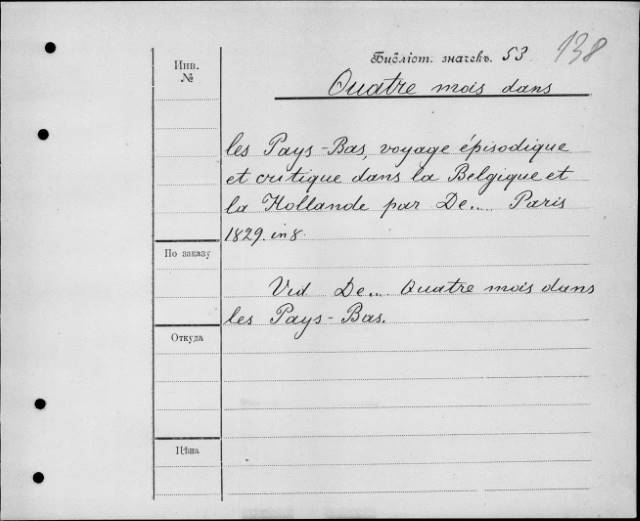 138
Библіот. значекъ. 53
Инв.
№
Quatre mois dans
les Pays-Bas, voyage épisodique
et critique dans la Belgique et
la Hollande par De.... Paris
1829. in 8.
По заказу
Vid De... Quatre mois dans
les Pays-Bas.
Откуда
Цѣна